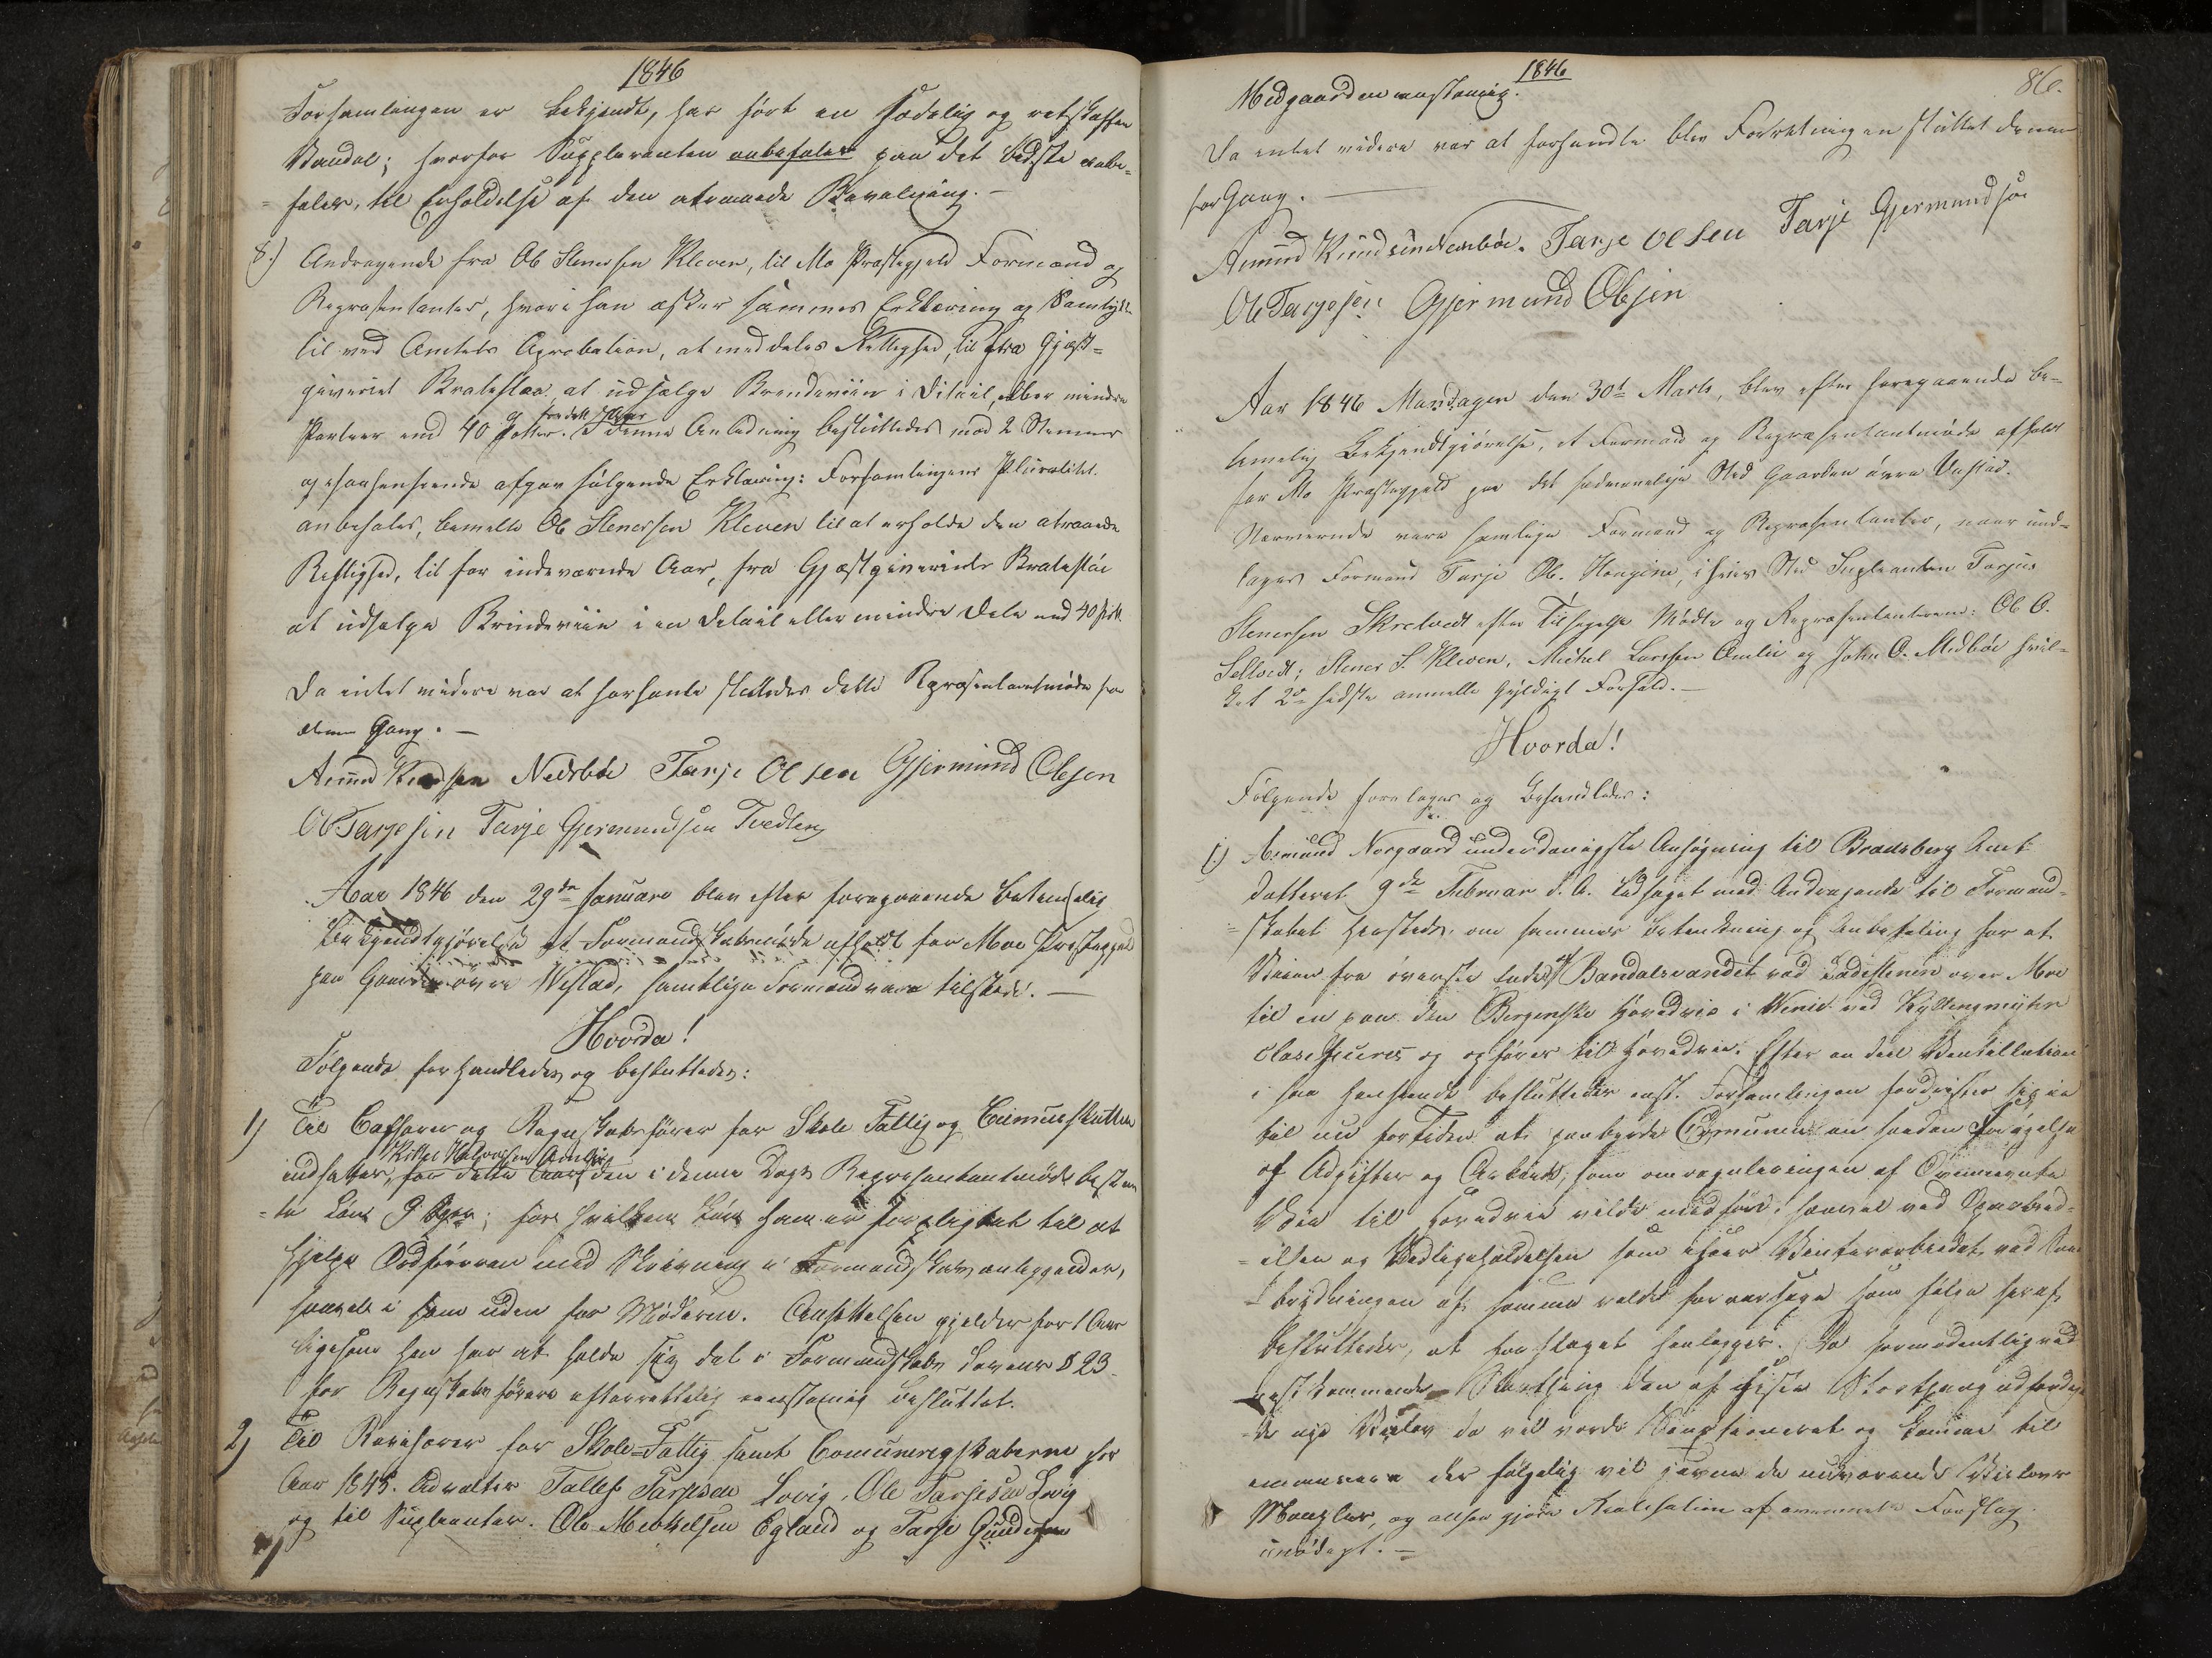 1846
Forsamlingen er bekjendt, har ført en sædelig og retskaffen
Vandel; hvorfor Supplicanten anbefales paa det bedste anbe-
fales, til Erholdelse af den attraaede Bevilgning. —
8.) Andragende fra Ole Stenersen Kleven, til Mo Præstegjeld Formænd og
Repræsentanter, hvori han æsker sammes Erklæring og Samtykke
til ved Amtets Aprobation, at meddeles Rettighed, til fra Gjæst-
giveriet Brateslaa at udsælge Brændeviin i Detail, eller mindre
for dette Aar
Partier end 40 Potter. I denne Anledning besluttedes mod 2 Stemmer
og saahenseende afgav følgende Erklæring: Forsamlingens Pluralitet
anbefales, bemelte Ole Stenersen Kleven til at erholde den attraaede
Rettighed, til for indeværende Aar, fra Gjæstgiveriet Brateslaae
at udsælge Brændeviin i en Detail eller mindre Dele end 40 Pott.
Da intet videre var at forhandle sluttedes dette Repræsentantmøde for
denne Gang. —
Aamund Knudsen Nedrebøe Tarje Olsen Gjermund Olsen
Ole Tarjesen Tarje Gjermundsen Tvedten
Aar 1846 den 29de Januare blev efter foregaaende betimelig
Bekjendtgjørelse et Formandskabsmøde afholdt for Moe Præstegjeld
paa Gaarden øvre Westad, samtlige Formænd vare tilstede. —
Hvorda!
Følgende forhandledes og besluttedes:
1) Til Casserer og Regnskabsfører for Skole Fattig og Comuneskatten
Kittel Halvorsen Aamlie
indsattes, for dette Aar, den i denne Dags Repræsentantmøde bestem
-te Løn 9 Spd; for hvilken Løn han er forpligtet til at
hjelpe Ordføreren med Skrivning i Formandskabs anliggender,
saavel i som uden for Møderne. Ansettelsen gjelder for 1 Aar
ligesom han har at holde sig det i Formandskabs Lovens § 23
for Regnskabsførere efterrettelig eenstemig besluttet.
2) Til Revisorer for Skole-Fattig samt Comuneregnskaberne for
Aar 1845. Udvaltes Tallef Tarjesen Lovig, Ole Tarjesen Lovig
og til Supleanter. Ole Mikkelsen Egland og Tarje Gundersen
1846
86.
Midgaarden eenstemig.
Da intet videre var at forhandle blev Forretningen sluttet denne
for Gang. —
Aamund Knudsen Nedrebøe. Tarje Olsen Tarje Gjermundsen
Ole Tarjesen Gjermund Olsen
Aar 1846 Mandagen den 30te Marts, blev efter foregaaende be-
timelig Bekjendtgjørelse, et Formænd og Repræsentantmøde afholdt
for Mo Præstegjeld paa det sædvanelige Sted Gaarden øvre Vestad.
Nærværende vare samtlige Formænd og Repræsentanter, naar und-
tages Formand Tarje Ols. Haugene, i hvis Sted Supleanten Tarjus
Stenersen Skretvedt efter Tilsigelse Mødte og Repræsentanterne: Ole O.
Seltvedt; Stener S. Kleven, Mickel Larssen Omlie og John O. Midbøe hvil-
ket 2de sidste anmelte gyldigt Forfald. —
Hvorda!
Følgende foretoges og behandledes:
1.) Aamund Norgaard underdanigste Ansøgning til Bratsberg Amt
datteret 9de Februar d. A. ledsaget med Andragende til Formand-
-skabet hersteds, om sammes Betenkning og Anbefaling for at
Veien fra øverste Ende af Bandaksvandet ved Ladestenen over Moe
til en paa den Bergenske Hovedvei i Winie ved Kyllingmyhr
classificeres og ophøies til Hovedvei. Efter en deel Ventellation
i saa henseende besluttedes enst. Forsamlingen fordrister sig ei
til nu for Tiden at paabyrde Comunen en saadan Forøgelse
af Udgifter og Arbeide, som omreguleringen af Ommeldte
Vei til Hovedvei vilde medføre, saavel ved Oparbeid-
-elsen og Vedligeholdelsen som især Vinterarbeidet ved Snee
-brydningen af samme vilde foraarsage som følge heraf
besluttedes, at forslaget henlegges. Da formodentlig ved
nestkommende Storthing den af sidste Storthing udfærdige
-de nye Veilov da vil vorde Sanksioneret og komme til
emanere der følgelig vil jævne de nuværende Veiloves
Mangler, og altsaa gjøre Realisation af ommeldte Forslag
unødigt. —